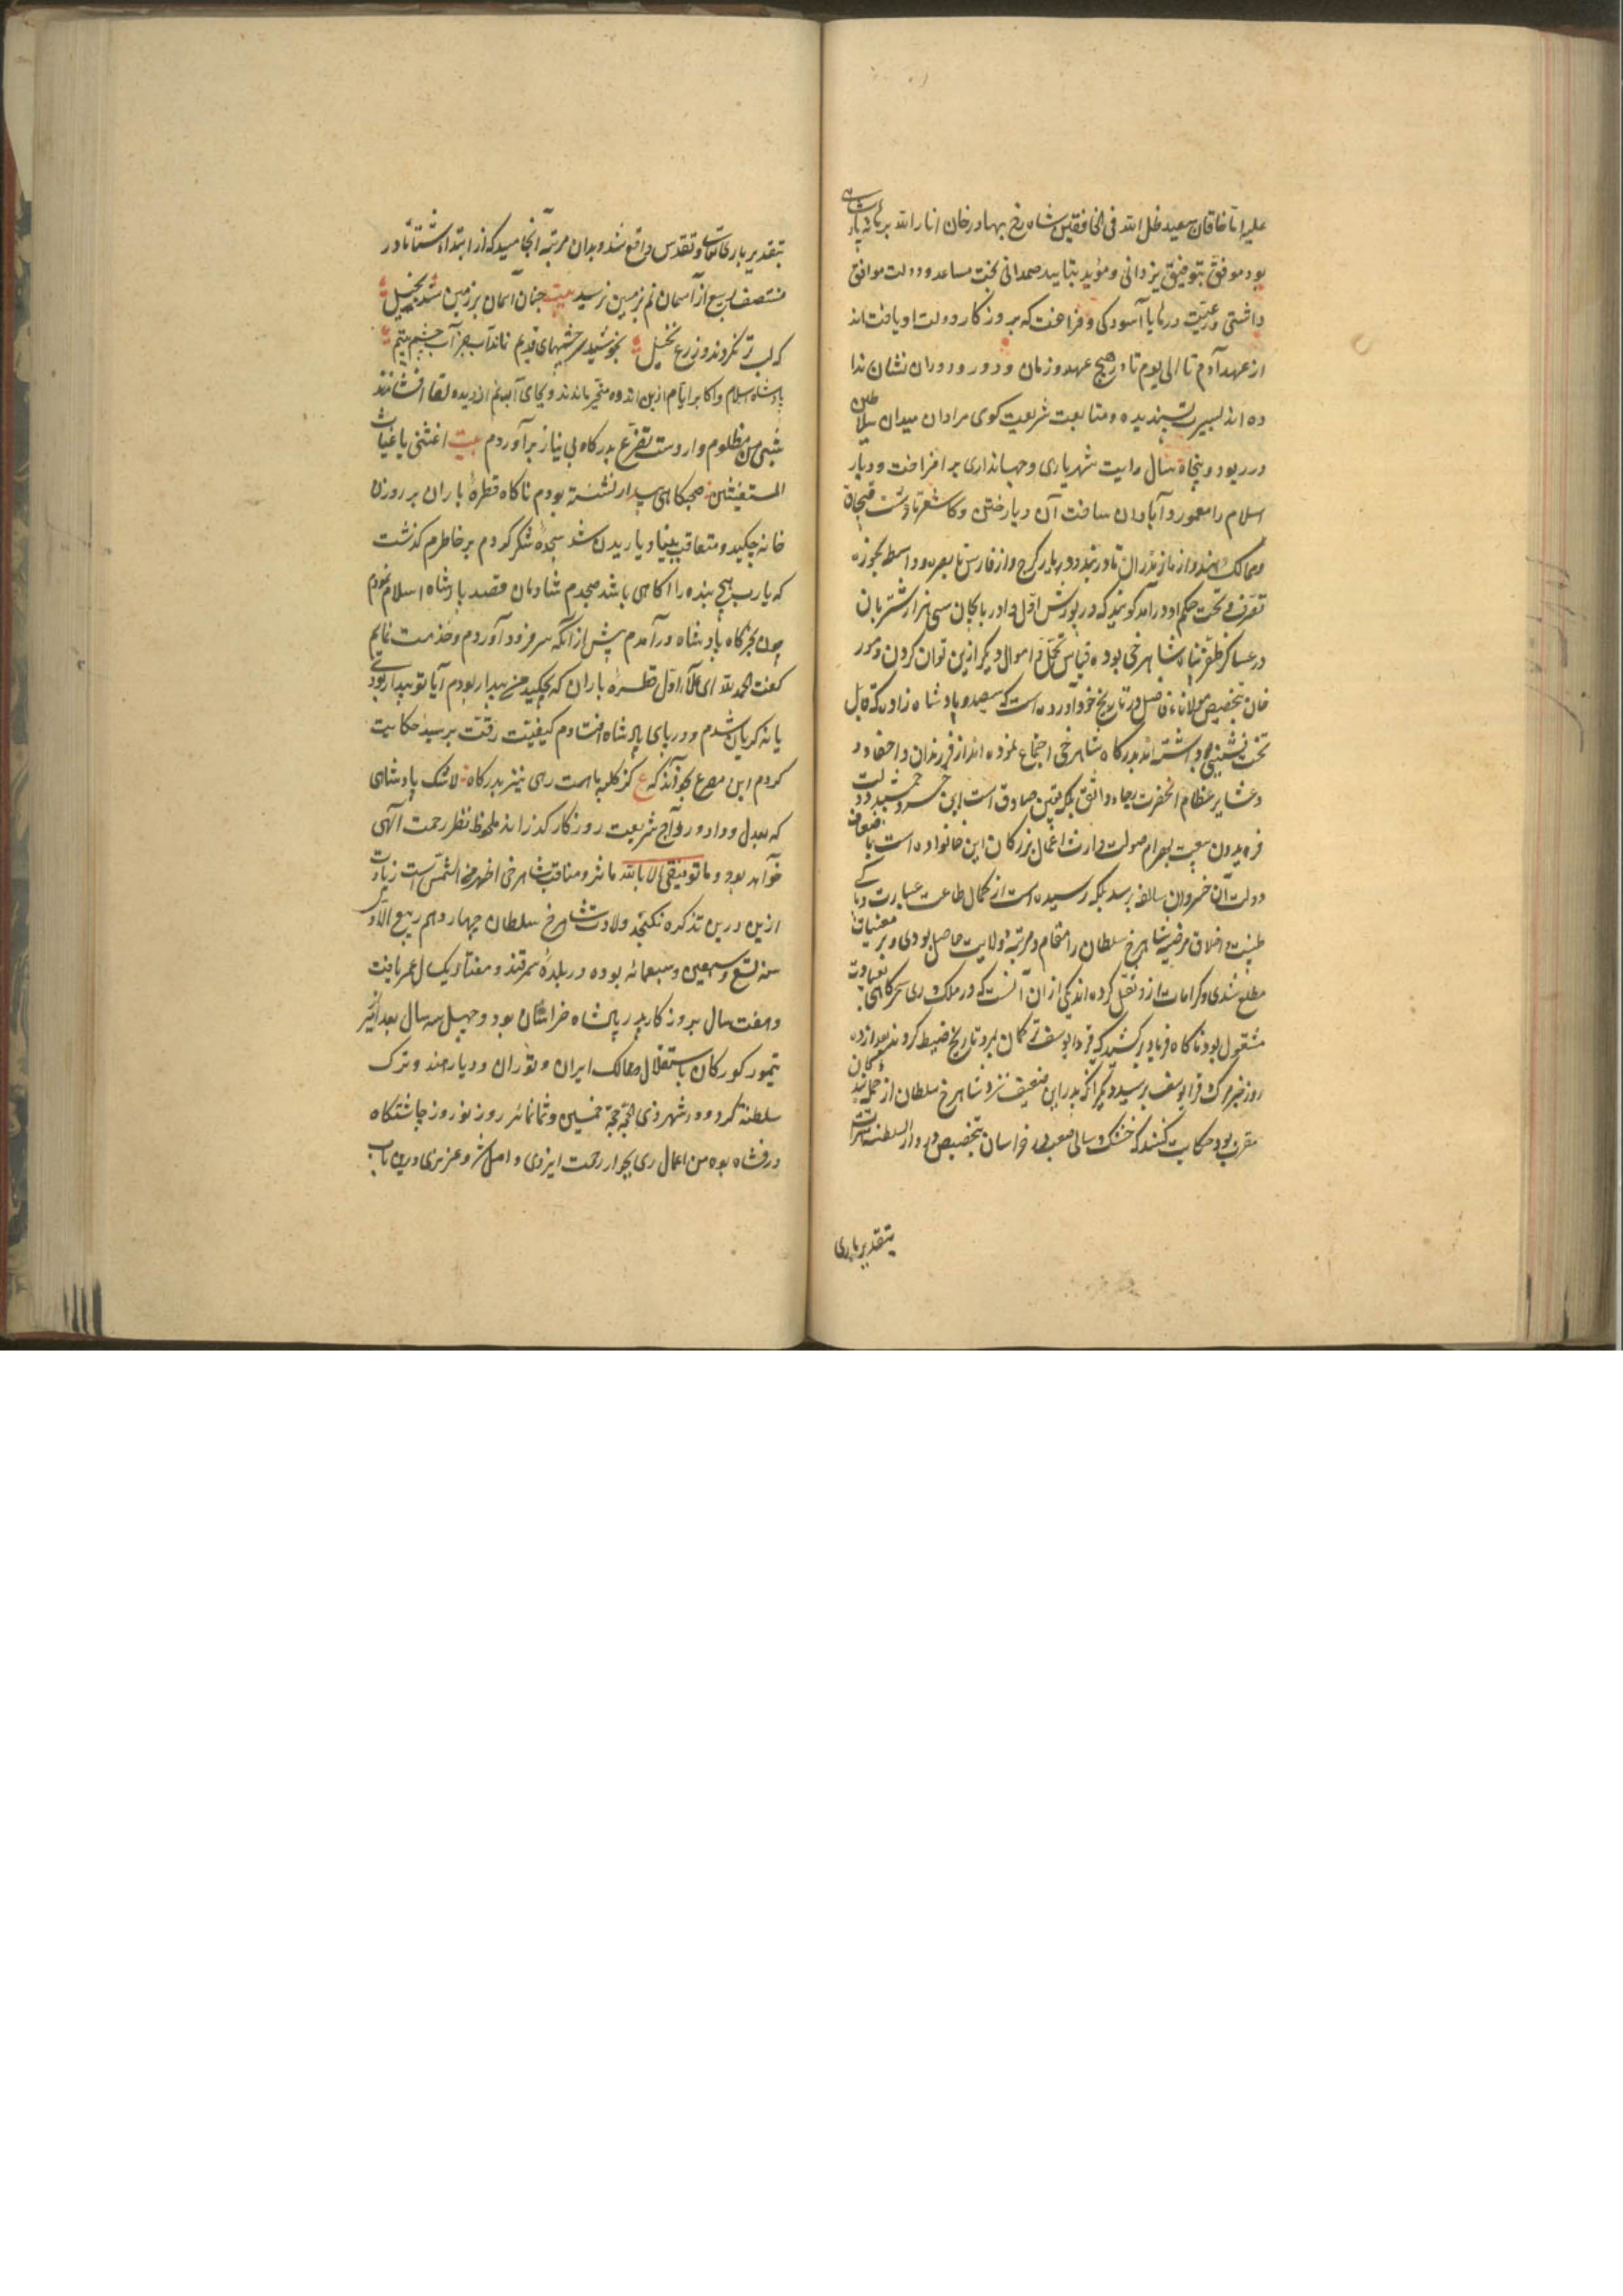 علیه اما خاقان سعید ظل الله فی الخافقین شاه رخ بهادر خان انار الله برهانه پادشاهی
بود موفق بتوفیق یزدانی و مؤید بتایید صمدانی بخت مساعد و دولت موافق
داشتی و رعیت و رعایا آسودکی و فراغت که بروزکار دولت او یافته‌اند
از عهد آدم تا الی یوم در هیچ عهد و زمان و دور و دوران نشان ندا
ده‌اند بسیرت پسندیده و متابعت شریعت کوی مراد از میدان سلاطین
در ربود و پنجاه سال رایت شهریاری و جهانداری بر افراخت و دیار
اسلام را معمور و آبادان ساخت از دیار ختن و کاشغر تا دشت قبچاق
و ممالک هند و از مازندران تا دربند و دیار کرج و از فارس تا بصره و واسط بحوزه
تصرف و تحت حکم او درآمد کویند که در یورش اول آذربایجان سی هزار شتربان
در عساکر ظفر پناه شاهرخی بوده قیاس تجمل و اموال دیکر ازین توان کردن و مور
خان بتخصیص مولانای فاضل در تاریخ خود آورده است که سیصد و پادشاه زاده که قابل
تخت نشینی بودند داشته‌اند بدرکاه شاهرخی اجتماع نموده‌اند از فرزندان و احفاد و
و عشایر عظام آنحضرت رجاء واثق بلکه یقین صادق است این خسرو جمشید دولت
فریدون سعید بهرام صولت وارث اعمال بزرکان این خانواده است باضعاف
دولت آن خسروان سالفه برسد بلکه رسیده است از کمال طاعت عبادت و پاکی
طینت و اخلاق مرضیه شاهرخ سلطان را مقام و مرتبه ولایت حاصل بودی و بر مغیبات
مطلع شدی و کرامات ازو نقل کرده‌اند یکی از ان آنست که در ملک ری سحرکاهی بعبادت
مشغول بود ناکاه فریاد بر کشید که قرا یوسف ترکمان بمرد تاریخ ضبط کردند بعد از ده
روز خبر مرک قرا یوسف برسید دیکر آنکه پدر این ضعیف نزد شاهرخ سلطان از جمله ندیمکان
مقرب بود حکایت کند که خشک سالی صعب در خراسان بتخصیص در دار السلطنه هرات
بتقدیر باری
بتقدیر باری تعالی و تقدس واقع شد و بدان مرتبه انجامید که از ابتداء شتا تا در
منتصف ربیع از آسمان نم بزمین نرسید بیت چنان آسمان بر زمین شد بخیل
که لب تر نکردند زرع و نخیل بخوشید سرچشمهای قدیم نماند آب جز آب چشم یتیم
پادشاه اسلام و اکابر ایام ازین اندوه متحیر ماندند و بجای آب نم از دیده لقا افشاندند
شبی من مظلوم وار دست تضرع بدرکاه بی نیاز برآوردم بیت اغثنی یا غیاث
المستغیثین صبحکاهی بیدار نشسته بودم ناکاه قطره باران بر روزن
خانه چکید و متعاقب بنیاد باریدن شد سجده شکر کردم بر خاطرم کذشت
که یا رب هیچ بنده را آکاهی باشد صبحدم شادمان قصد پادشاه اسلام نمودم
چون بخرکاه پادشاه درآمدم پیش از آنکه سر فرود آوردم و خدمت نمایم
کفت الحمد لله ای علاء اول قطره باران که بچکید من بیدار بودم آیا تو بیدار بودی
یا نه کریان شدم و در پای پادشاه افتادم کیفیت رقت پرسید حکایت
کردم این مصرع بخواند که ع کز کلبه ما هست رهی نیز بدرکاه لا شک پادشاهی
که بعدل و داد و رواج شریعت روزکار کذراند ملحوظ نظر رحمت الهی
خواهد بود و ما توفیقی الا بالله مآثر و مناقب شاهرخی اظهر من الشمس است زیادت
ازین درین تذکره نکنجد ولادت شاهرخ سلطان چهاردهم ربیع الآخر
سنه تسع و سبعین و سبعمائه بوده در بلده سمرقند و هفتاد و یک سال عمر یافت
و هفت سال بروزکار پدر پادشاه خراسان بود و چهل سه سال بعد از امیر
تیمور کورکان باستقلال ممالک ایران و توران و دیار هند و ترک
سلطنة کرد و در شهر ذی الحجه حجه خمسین و ثمانمائه روز نوروز چاشتکاه
در فشاه بوه من اعمال ری بجوار رحمت ایزدی واصل شد و عزیزی درین باب